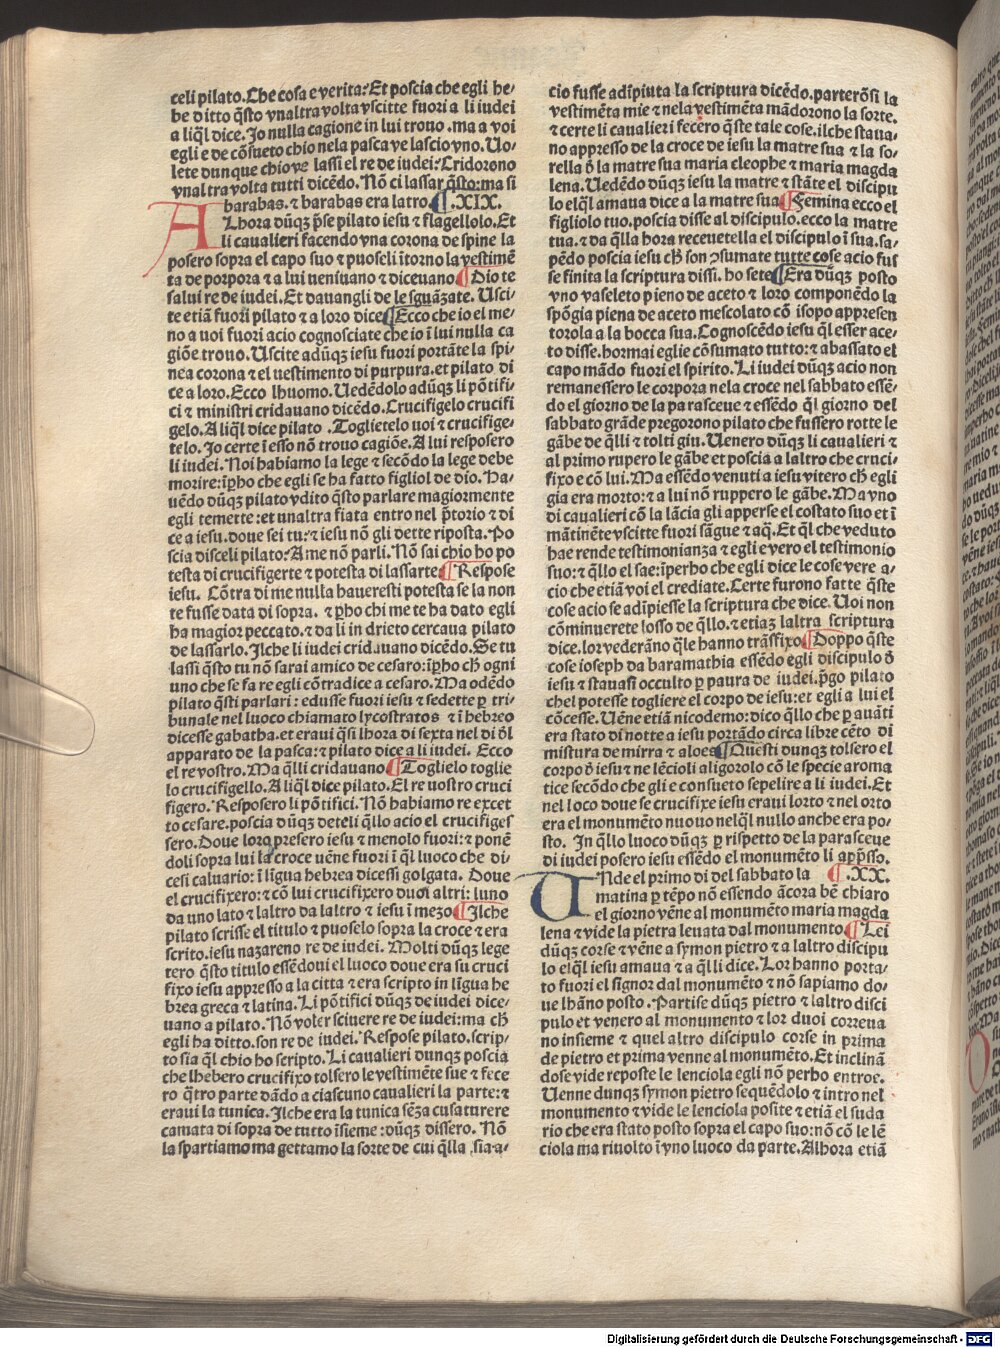 celi pilato. Che cosa e verita? Et poscia che egli he-
be ditto q̄sto vnaltra volta vscitte fuori a li iudei
a liq̄l dice. Jo nulla cagione in lui trouo. ma a voi
egli e de cōsueto chio nela pasca ve lascio vno. Uo-
lete dunque chio ve lassi el re de iudei? Cridorono
vnaltra volta tutti dicēdo. Nō ci lassar q̄sto: ma si
barabas. ⁊ barabas era latro. ¶ .XIX.
ALhora dūqȝ p̄se pilato iesu ⁊ flagellolo. Et
li caualieri facendo vna corona de spine la
posero sopra el capo suo ⁊ puoseli ītorno la vestimē
ta de porpora ⁊ a lui veniuano ⁊ diceuano ¶ Dio te
salui re de iudei. Et dauangli de le sguāzate. Usci-
te etiā fuori pilato ⁊ a loro dice ¶ Ecco che io el me-
no a voi fuori acio cognosciate che io ī lui nulla ca
giōe trouo. Uscite adūqȝ iesu fuori portāte la spi-
nea corona ⁊ el uestimento di purpura. et pilato di
ce a loro. Ecco lhuomo. Uedēdolo adūqȝ li pōtifi-
ci ⁊ ministri cridauano dicēdo. Crucifigelo crucifi
gelo. A liq̄l dice pilato. Toglietelo uoi ⁊ crucifige-
telo. Jo certe ī esso nō trouo cagiōe. A lui resposero
li iudei. Noi habiamo la lege ⁊ secōdo la lege debe
morire: īpho che egli se ha fatto figliol de dio. Ha-
uēdo dūqȝ pilato vdito q̄sto parlare magiormente
egli temette: et unaltra fiata entro nel p̄torio ⁊ di
ce a iesu. doue sei tu? ⁊ iesu nō gli dette riposta. Po
scia disceli pilato? A me nō parli. Nō sai chio ho po
testa di crucifigerte ⁊ potesta di lassarte ¶ Respose
iesu. Cōtra di me nulla haueresti potesta se la non
te fusse data di sopra. ⁊ pho chi me te ha dato egli
ha magior peccato. ⁊ da li in drieto cercaua pilato
de lassarlo. Jlche li iudei cridauano dicēdo. Se tu
lassi q̄sto tu nō sarai amico de cesaro: īpho ch̄ ogni
uno che se fa re egli cōtradice a cesaro. Ma odēdo
pilato q̄sti parlari: edusse fuori iesu ⁊ sedette p tri-
bunale nel luoco chiamato lycostratos ⁊ ī hebreo
dicesse gabatha. et eraui q̄si lhora di sexta nel di dl̄
apparato de la pasca: ⁊ pilato dice a li iudei. Ecco
el re vostro. Ma q̄lli cridauano ¶ Toglielo toglie
lo crucifigello. A liq̄l dice pilato. El re uostro cruci
figero. Resposero li pōtifici. Nō habiamo re excet
to cesare. poscia dūqȝ deteli q̄llo acio el crucifiges
sero. Doue loro presero iesu ⁊ menolo fuori: ⁊ ponē
doli sopra lui la croce uēne fuori ī q̄l luoco che di-
cesi caluario: ī līgua hebrea dicessi golgata. Doue
el crucifixero: ⁊ cō lui crucifixero duoi altri: luno
da uno lato ⁊ laltro da laltro ⁊ iesu ī mezo ¶ Jlche
pilato scrisse el titulo ⁊ puoselo sopra la croce ⁊ era
scrito. iesu nazareno re de iudei. Molti dūqȝ lege
tero q̄sto titulo essēdoui el luoco doue era su cruci
fixo iesu appresso a la citta ⁊ era scripto in līgua he-
brea greca ⁊ latina. Li pōtifici dūqȝ de iudei dice-
uano a pilato. Nō voler sciuere re de iudei: ma ch̄
egli ha ditto. son re de iudei. Respose pilato. scrip-
to sia q̄l chio ho scripto. Li caualieri dunqȝ poscia
che lhebero crucifixo tolsero le vestimēte sue ⁊ fece
ro q̄tro parte dādo a ciascuno caualieri la parte: ⁊
eraui la tunica. Jlche era la tunica sēza cusaturere
camata di sopra de tutto īsieme: dūqȝ dissero. Nō
la spartiamo ma gettamo la sorte de cui q̄lla sia. a-
cio fusse adīpiuta la scriptura dicēdo. parterōsi la
vestimēta mie ⁊ ne la vestimēta mādorono la sorte.
⁊ certe li caualieri fecero q̄ste tale cose. ilche staua-
no appresso de la croce de iesu la matre sua ⁊ la so-
rella d̄ la matre sua maria cleophe ⁊ maria magda
lena. Uedēdo dūqȝ iesu la matre ⁊ stāte el discipu
lo elq̄l amaua dice a la matre sua ¶ Femina ecco el
figliolo tuo. poscia disse al discipulo. ecco la matre
tua. ⁊ da q̄lla hora receuetella el discipulo ī sua. sa-
pēdo poscia iesu ch̄ son ꝯsumate tutte cose acio fus
se finita la scriptura dissi. ho sete ¶ Era dūqȝ posto
vno vaseleto pieno de aceto ⁊ loro componēdo la
spōgia piena de aceto mescolato cō isopo appresen
torola a la bocca sua. Cognoscēdo iesu q̄l esser ace-
to disse. hormai eglie cōsumato tutto: ⁊ abassato el
capo mādo fuori el spirito. Li iudei dūqȝ acio non
remanessero le corpora nela croce nel sabbato essē-
do el giorno de la parasceue ⁊ essēdo q̄l giorno del
sabbato grāde pregorono pilato che fussero rotte le
gābe de q̄lli ⁊ tolti giu. Uenero dūqȝ li caualieri ⁊
al primo rupero le gābe et poscia a laltro che cruci-
fixo e cō lui. Ma essēdo venuti a iesu vitero ch̄ egli
gia era morto: ⁊ a lui nō ruppero le gābe. Ma vno
di caualieri cō la lācia gli apperse el costato suo et ī
mātinēte vscitte fuori sāgue ⁊ aq̄. Et q̄l che veduto
hae rende testimonianza ⁊ egli e vero el testimonio
suo: ⁊ q̄llo el sae: īperho che egli dice le cose vere a-
cio che etiā voi el crediate. Certe furono fatte q̄ste
cose acio se adīpiesse la scriptura che dice. Uoi non
cōminuerete losso de q̄llo. ⁊ etiaȝ laltra scriptura
dice. lor vederāno q̄le hanno trāsfixo ¶ Doppo q̄ste
cose ioseph da baramathia essēdo egli discipulo d̄
iesu ⁊ stauasi occulto p paura de iudei. p̄go pilato
chel potesse togliere el corpo de iesu: et egli a lui el
cōcesse. Uēne etiā nicodemo: dico q̄llo che p auāti
era stato di notte a iesu portādo circa libre cēto di
mistura de mirra ⁊ aloes ¶ Questi dunqȝ tolsero el
corpo d̄ iesu ⁊ ne lēcioli aligorolo cō le specie aroma
tice secōdo che gli e consueto sepelire a li iudei. Et
nel loco doue se crucifixe iesu eraui lorto ⁊ nel orto
era el monumēto nuouo nelq̄l nullo anche era po-
sto. In q̄llo luoco dūqȝ p rispetto de la parasceue
di iudei posero iesu essēdo el monumēto li app̄sso.
UNde el primo di del sabbato la ¶ .XX.
matina p tēpo nō essendo ācora bē chiaro
el giorno vēne al monumēto maria magda
lena ⁊ vide la pietra leuata dal monumento ¶ Lei
dūqȝ corse ⁊ vēne a symon pietro ⁊ a laltro discipu
lo elq̄l iesu amaua ⁊ a q̄lli dice. Lor hanno porta-
to fuori el signor dal monumēto ⁊ nō sapiamo do-
ue lhāno posto. Partise dūqȝ pietro ⁊ laltro disci
pulo et venero al monumento ⁊ lor duoi correua
no insieme ⁊ quel altro discipulo corse in prima
de pietro et prima venne al monumēto. Et inclinā
dose vide reposte le lenciola egli nō perho entroe.
Uenne dunqȝ symon pietro sequēdolo ⁊ intro nel
monumento ⁊ vide le lenciola posite ⁊ etiā el suda
rio che era stato posto sopra el capo suo: nō cō le lē
ciola ma riuolto ī vno luoco da parte. Alhora etiā
Digitalisierung gefördert durch die Deutsche Forschungsgemeinschaft - DFG